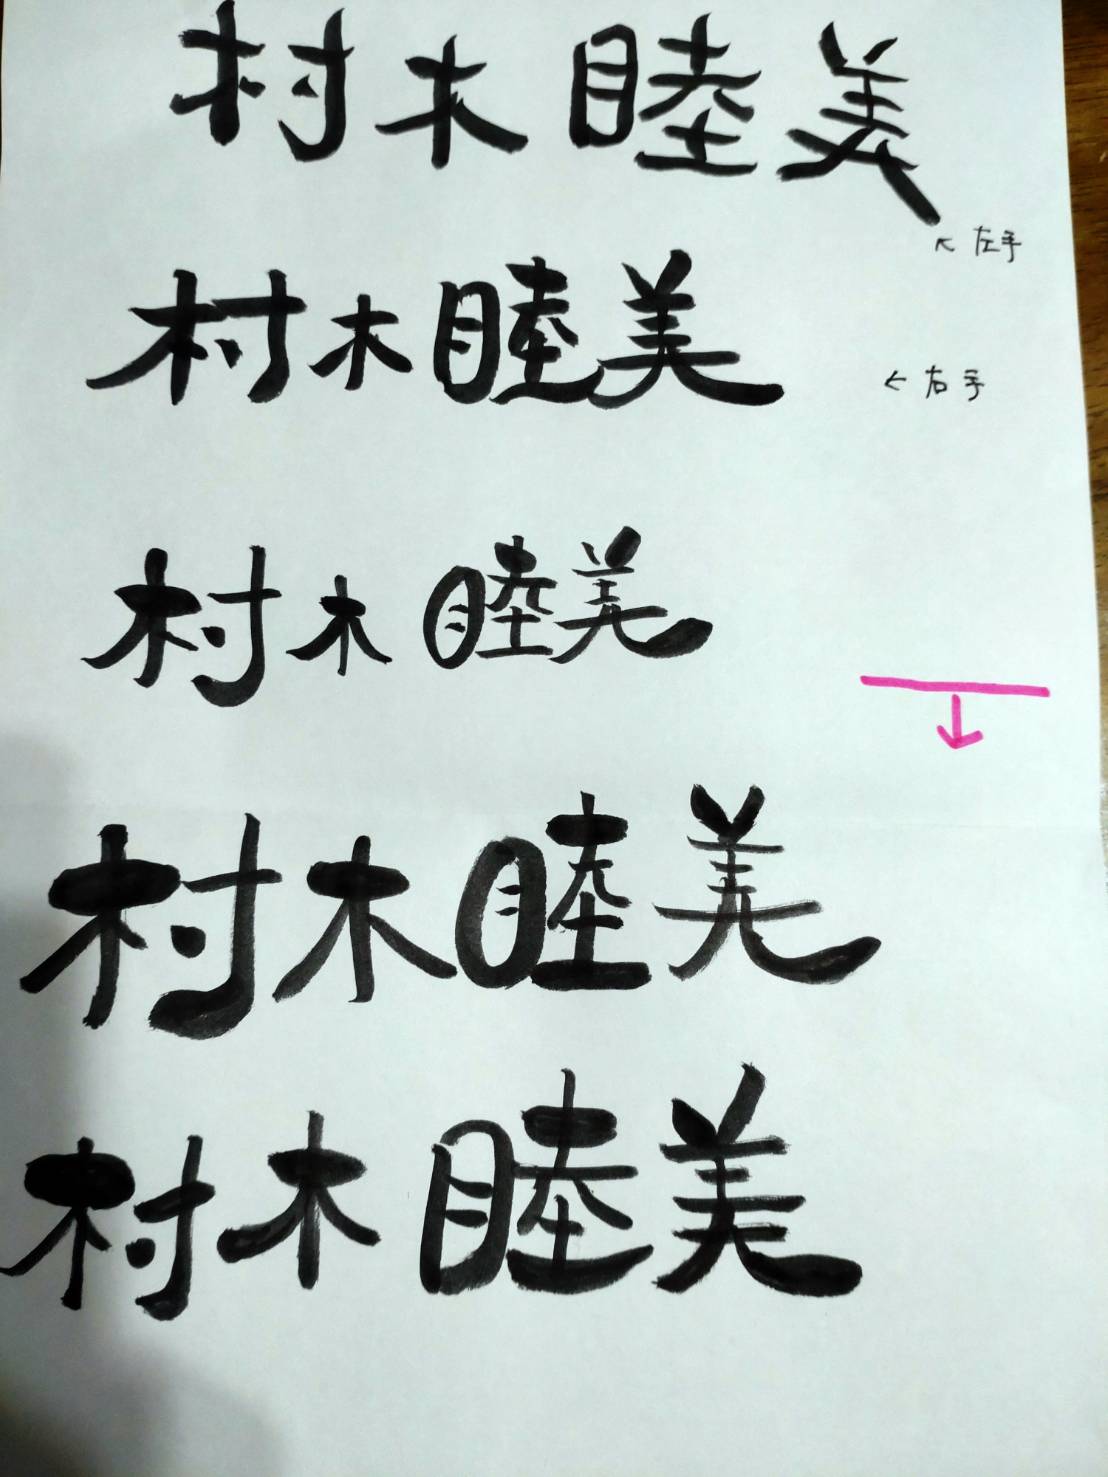 村木睦美
← 左手
村木睦美
← 右手
村木睦美
村木睦美
村木睦美